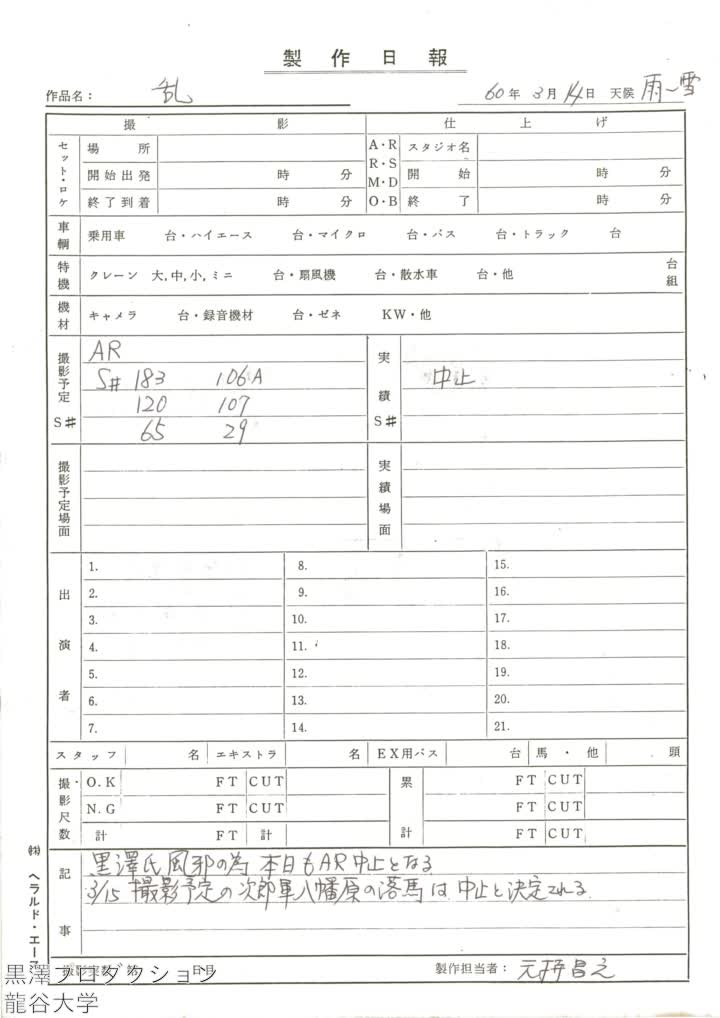 製作日報
作品名： 乱 60年 3月 14日 天候 雨〜雪
撮影 仕上げ
セット・ロケ 場所 A・R R・S M・D O・B スタジオ名
開始出発 時 分 開始 時 分
終了到着 時 分 終了 時 分
車輌 乗用車 台・ハイエース 台・マイクロ 台・バス 台・トラック 台
特機 クレーン 大,中,小,ミニ 台・扇風機 台・散水車 台・他 台組
機材 キャメラ 台・録音機材 台・ゼネ KW・他
撮影予定 S# AR 実績 S#
S# 183 106A 中止
120 107
65 29
撮影予定場面 実績場面
出演者
1. 8. 15.
2. 9. 16.
3. 10. 17.
4. 11. 18.
5. 12. 19.
6. 13. 20.
7. 14. 21.
スタッフ 名 エキストラ 名 EX用バス 台 馬・他 頭
撮影尺数 O.K FT CUT 累計 FT CUT
N.G FT CUT FT CUT
計 FT 計 FT CUT
記事
黒澤氏風邪の為 本日もAR中止となる
3/15 撮影予定の次郎軍八幡原の落馬は、中止と決定される
撮影実数 第 日目 製作担当者：
㈱ ヘラルド・エース
黒澤プロダクション
龍谷大学